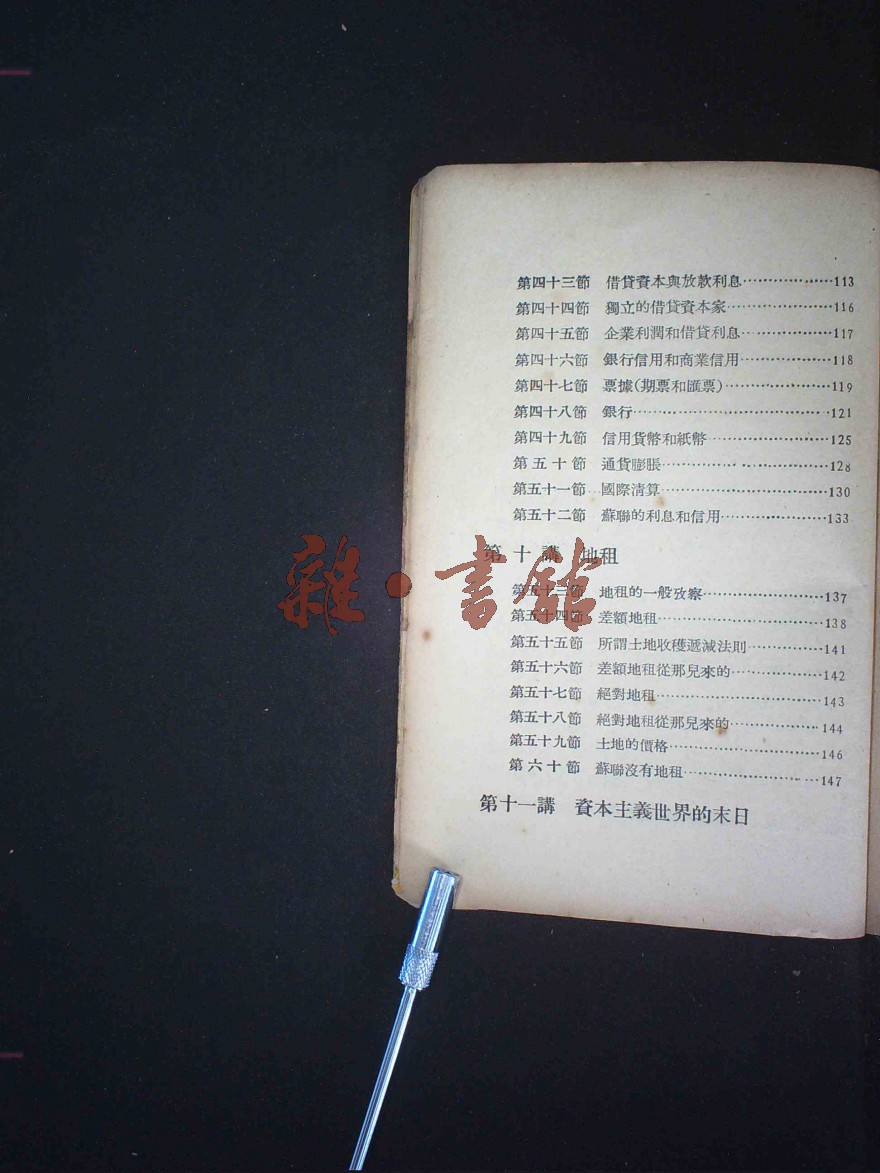 第四十三節 借貸資本與放款利息··················113
第四十四節 獨立的借貸資本家·····················116
第四十五節 企業利潤和借貸利息··················117
第四十六節 銀行信用和商業信用··················118
第四十七節 票據(期票和匯票)·····················119
第四十八節 銀行·······································121
第四十九節 信用貨幣和紙幣························125
第五十節 通貨膨脹·································128
第五十一節 國際清算·································130
第五十二節 蘇聯的利息和信用·····················133
第十講 地租
第五十三節 地租的一般攷察························137
第五十四節 差額地租·································138
第五十五節 所謂土地收穫遞減法則···············141
第五十六節 差額地租從那兒來的··················142
第五十七節 絕對地租·································143
第五十八節 絕對地租從那兒來的··················144
第五十九節 土地的價格······························146
第六十節 蘇聯沒有地租···························147
第十一講 資本主義世界的末日
雜·書館